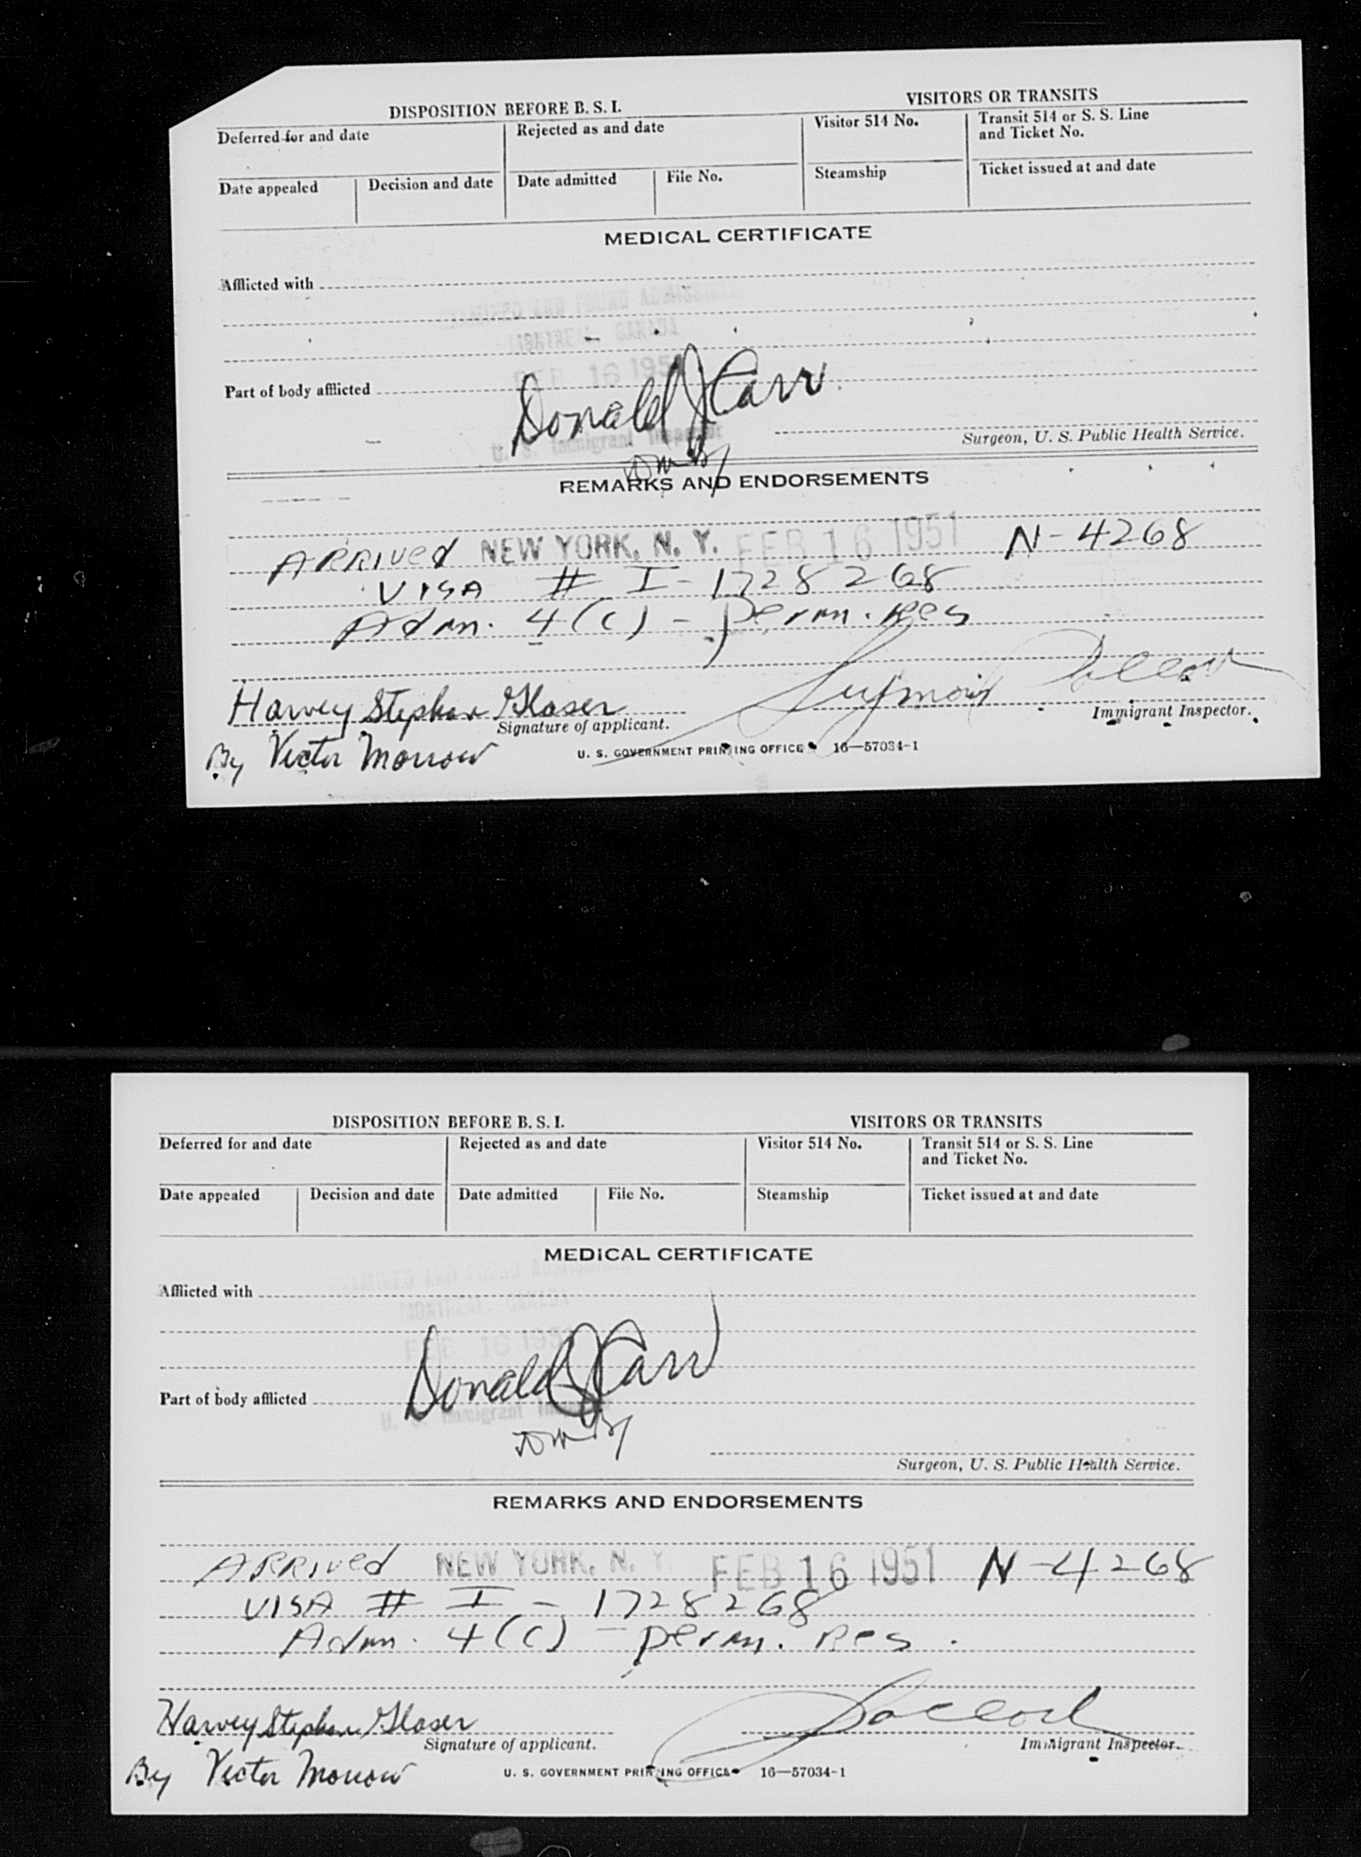 DISPOSITION BEFORE B. S. I.
VISITORS OR TRANSITS
Deferred for and date
Rejected as and date
Visitor 514 No.
Transit 514 or S. S. Line
and Ticket No.
Date appealed
Decision and date
Date admitted
File No.
Steamship
Ticket issued at and date
MEDICAL CERTIFICATE
Afflicted with
MONTREAL, CANADA
FEB 16 1951
Part of body afflicted
Donald J Carr
U. S. Immigrant Inspector
Surgeon, U. S. Public Health Service.
REMARKS AND ENDORSEMENTS
ARRIVED NEW YORK, N. Y. FEB 16 1951 N-4268
VISA # I-1728268
Adm. 4(c) - perm. Res
Harvey Stephen Glaser Seymour
Signature of applicant.
Immigrant Inspector.
By Victor Morrow
U. S. GOVERNMENT PRINTING OFFICE 16—57034-1
DISPOSITION BEFORE B. S. I.
VISITORS OR TRANSITS
Deferred for and date
Rejected as and date
Visitor 514 No.
Transit 514 or S. S. Line
and Ticket No.
Date appealed
Decision and date
Date admitted
File No.
Steamship
Ticket issued at and date
MEDICAL CERTIFICATE
Afflicted with
MONTREAL, CANADA
16 1951
Part of body afflicted
Donald J Carr
U. S. Immigrant Inspector
Surgeon, U. S. Public Health Service.
REMARKS AND ENDORSEMENTS
ARRIVED NEW YORK, N. Y. FEB 16 1951 N-4268
VISA # I-1728268
Adm. 4(c) - perm. Res.
Harvey Stephen Glaser
Signature of applicant.
Immigrant Inspector.
By Victor Morrow
U. S. GOVERNMENT PRINTING OFFICE 16—57034-1